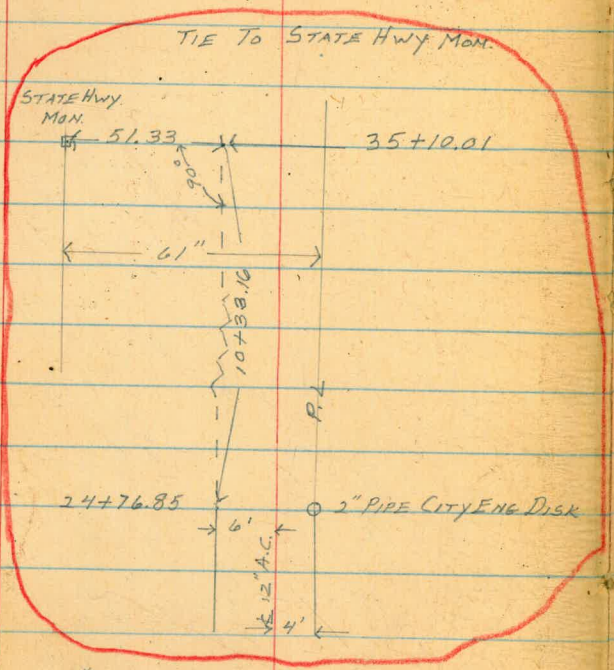 TIE TO STATE HWY MON.
STATE HWY.
MON.
51.33
35+10.01
90°
61"
10+33.16
P.L
24+76.85
2" PIPE CITY ENG DISK
6'
℄ 12" A.C.
4'